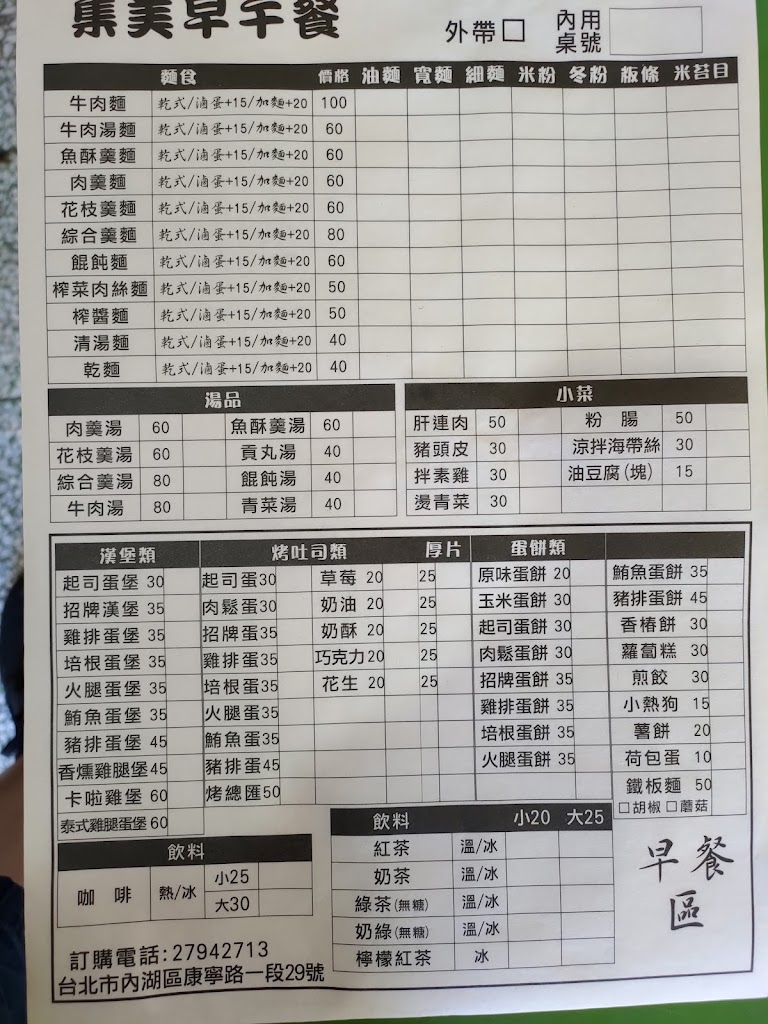 集美早午餐
外帶□ 內用桌號
麵食 價格 油麵 寬麵 細麵 米粉 冬粉 板條 米苔目
牛肉麵 乾式/滷蛋+15/加麵+20 100
牛肉湯麵 乾式/滷蛋+15/加麵+20 60
魚酥羹麵 乾式/滷蛋+15/加麵+20 60
肉羹麵 乾式/滷蛋+15/加麵+20 60
花枝羹麵 乾式/滷蛋+15/加麵+20 60
綜合羹麵 乾式/滷蛋+15/加麵+20 80
餛飩麵 乾式/滷蛋+15/加麵+20 60
榨菜肉絲麵 乾式/滷蛋+15/加麵+20 50
榨醬麵 乾式/滷蛋+15/加麵+20 50
清湯麵 乾式/滷蛋+15/加麵+20 40
乾麵 乾式/滷蛋+15/加麵+20 40
湯品
肉羹湯 60 魚酥羹湯 60
花枝羹湯 60 貢丸湯 40
綜合羹湯 80 餛飩湯 40
牛肉湯 80 青菜湯 40
小菜
肝連肉 50 粉腸 50
豬頭皮 30 涼拌海帶絲 30
拌素雞 30 油豆腐(塊) 15
燙青菜 30
漢堡類
起司蛋堡 30
招牌漢堡 35
雞排蛋堡 35
培根蛋堡 35
火腿蛋堡 35
鮪魚蛋堡 35
豬排蛋堡 45
香燻雞腿堡45
卡啦雞堡 60
泰式雞腿蛋堡60
烤吐司類 厚片
起司蛋30 草莓 20 25
肉鬆蛋30 奶油 20 25
招牌蛋35 奶酥 20 25
雞排蛋35 巧克力20 25
培根蛋35 花生 20 25
火腿蛋35
鮪魚蛋35
豬排蛋45
烤總匯50
蛋餅類
原味蛋餅 20 鮪魚蛋餅 35
玉米蛋餅 30 豬排蛋餅 45
起司蛋餅 30 香椿餅 30
肉鬆蛋餅 30 蘿蔔糕 30
招牌蛋餅 35 煎餃 30
雞排蛋餅 35 小熱狗 15
培根蛋餅 35 薯餅 20
火腿蛋餅 35 荷包蛋 10
鐵板麵 50
□胡椒 □蘑菇
飲料
咖啡 熱/冰 小25
大30
飲料 小20 大25
紅茶 溫/冰
奶茶 溫/冰
綠茶(無糖) 溫/冰
奶綠(無糖) 溫/冰
檸檬紅茶 冰
早餐區
訂購電話:27942713
台北市內湖區康寧路一段29號